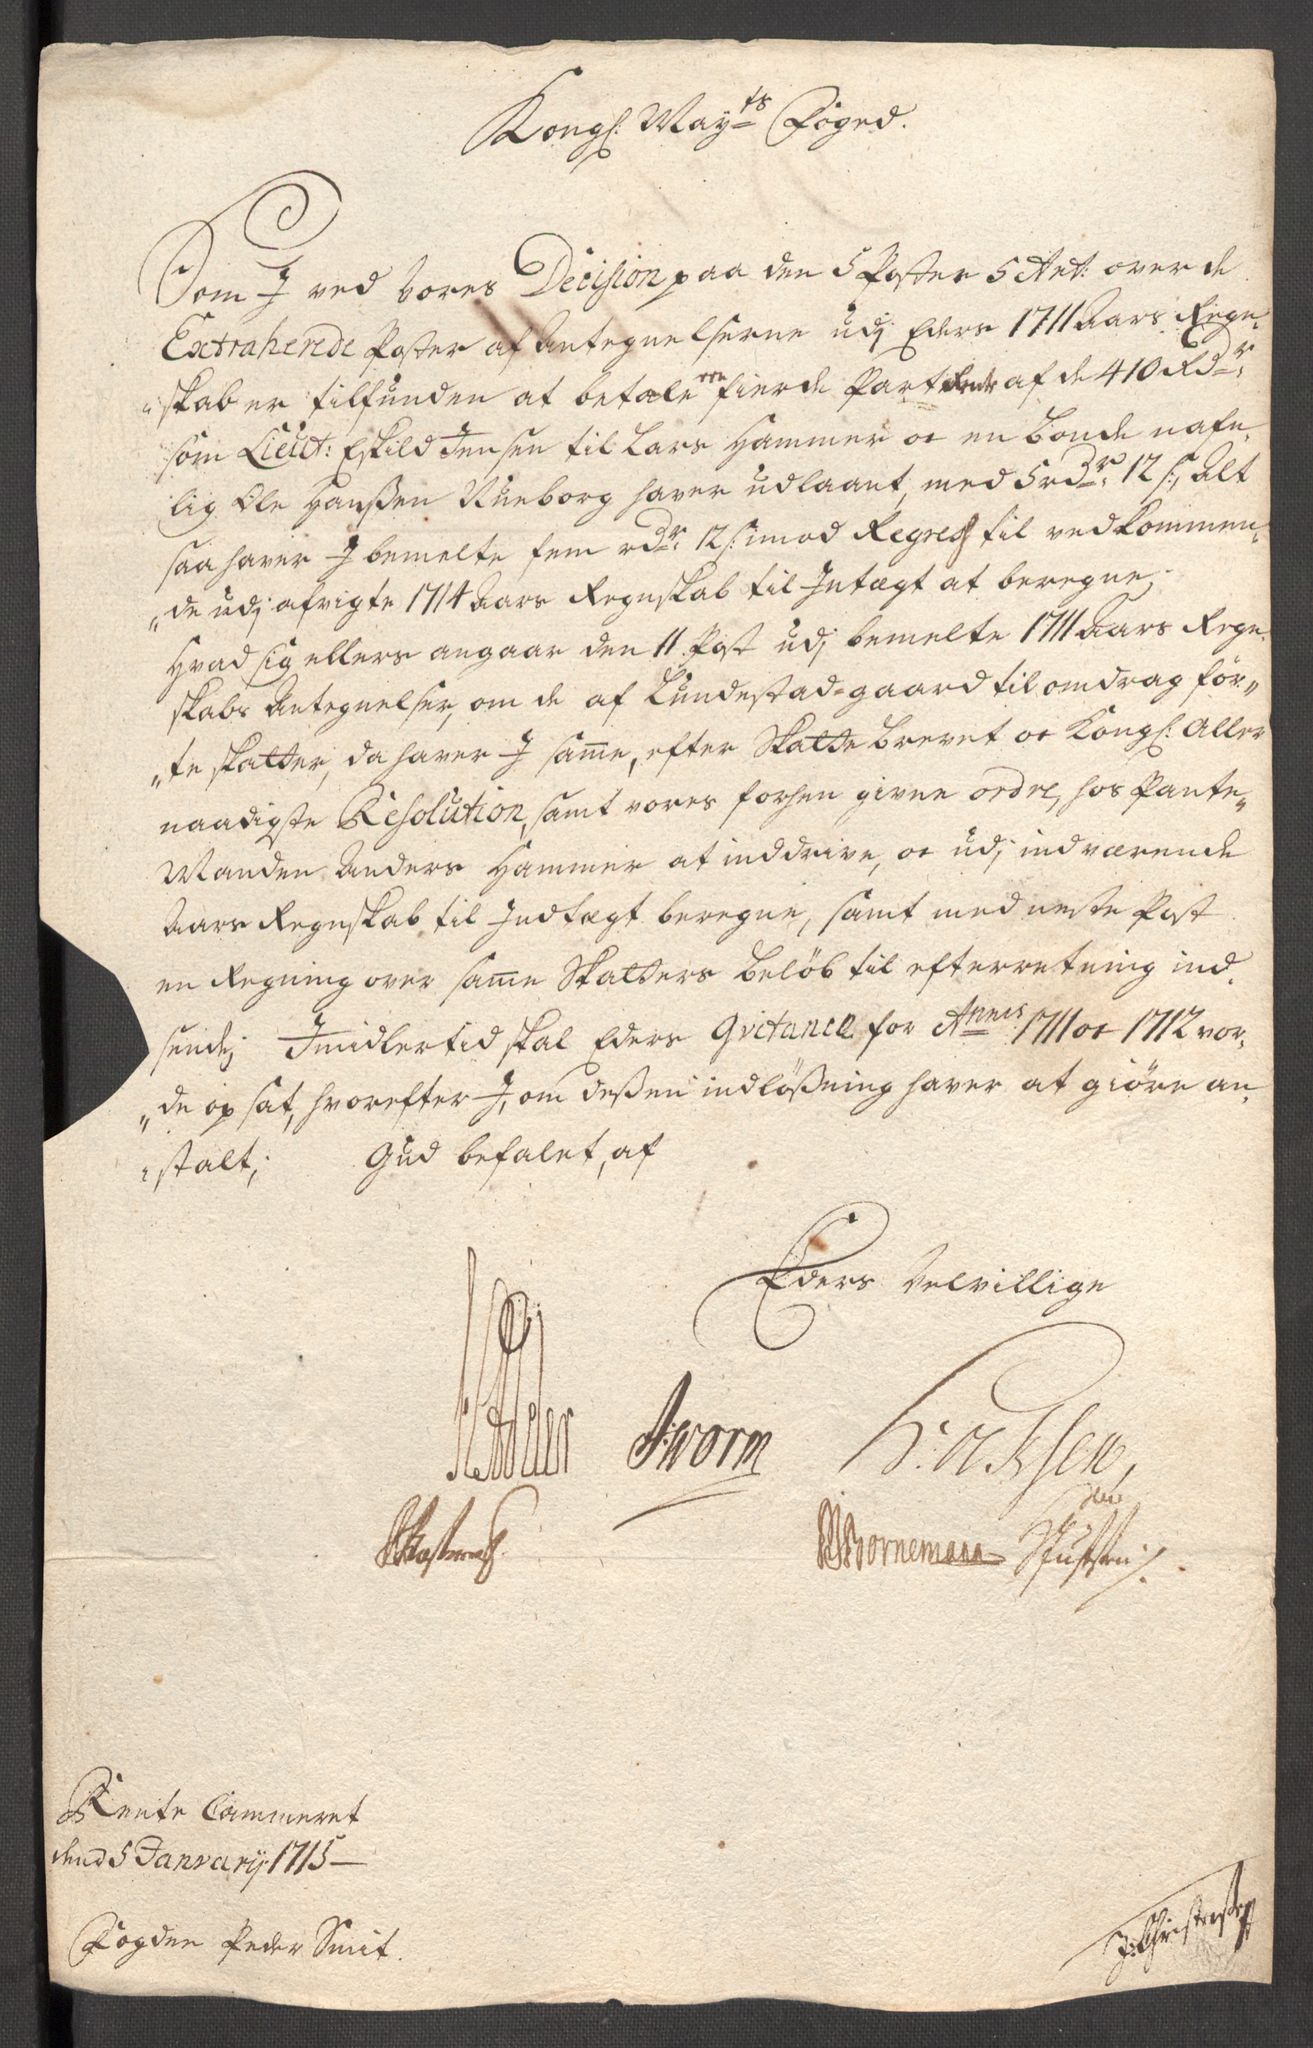 Kongl: May:ts Foged.
Som I ved Vores Decision paa den 5 Poster 5 Ant: over de
Extraherede Poster af Antegnelserne udj Eders 1711 Aars Regn,,
,,skab er tilfunden at betale een fierde Part af de 410 Rdr:
som Lieut: Eskild Jensen til Lars Hammer oc en Bonde nafn,,
lig Ole Hanßen Rueborg haver udlaant, med 5 rdr: 12 s:, Alt
saa haver I bemelte fem rdr: 12 s: imod Regress til vedkommen,,
,,de udj afvigte 1714 Aars Regnskab til Intægt at beregne;
Hvad sig ellers angaar den 11 Post udj bemelte 1711 Aars Regn,,
skabs Antegnelser, om de af Lundestad-gaard til omdrag för,,
,,te skatter, da haver I same, efter Skatte Brevet oc Kongl: Aller
naadigste Resolution, samt vores forhen givne ordre, hos Pante,,
Manden Anders Hammer at inddrive, oc udj indværende
Aars Regnskab til Indtægt beregne, samt med neste Post
en Regning over same Skatters beløb til efterretning ind,,
sende; Imidlertid skal Eders Qvitance for Annis 1711 oc 1712 vor,,
,,de op sat, hvorefter I, om deßen indlößning haver at giöre an,,
,,stalt; Gud befalet, af
Eders Velvillige
Adeler JWorm
Bornemann
Rente Cammeret
dend 5 Janvarij 1715
Fogden Peder Smit.